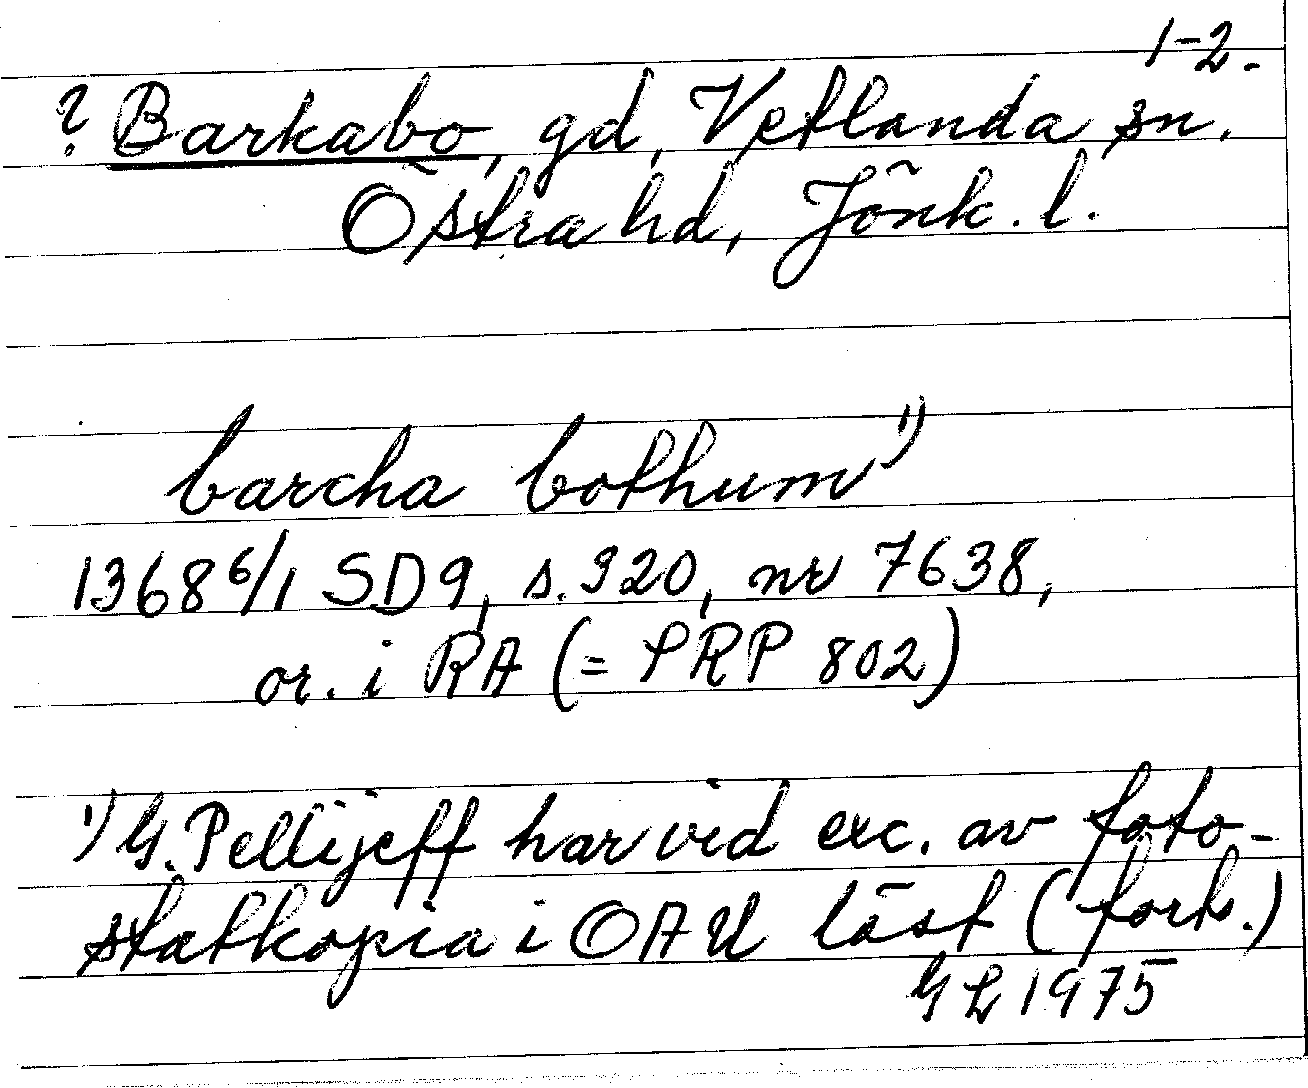 1-2.
? Barkabo, gd, Vetlanda sn.
Östra hd, Jönk. l.
barcha bothum 1)
1368 6/1 SD9, s. 320, nr 7638,
or. i RA (= PRP 802)
1) G. Pellijeff har vid exc. av foto-
statkopia i OAU läst (forts.)
GL 1975